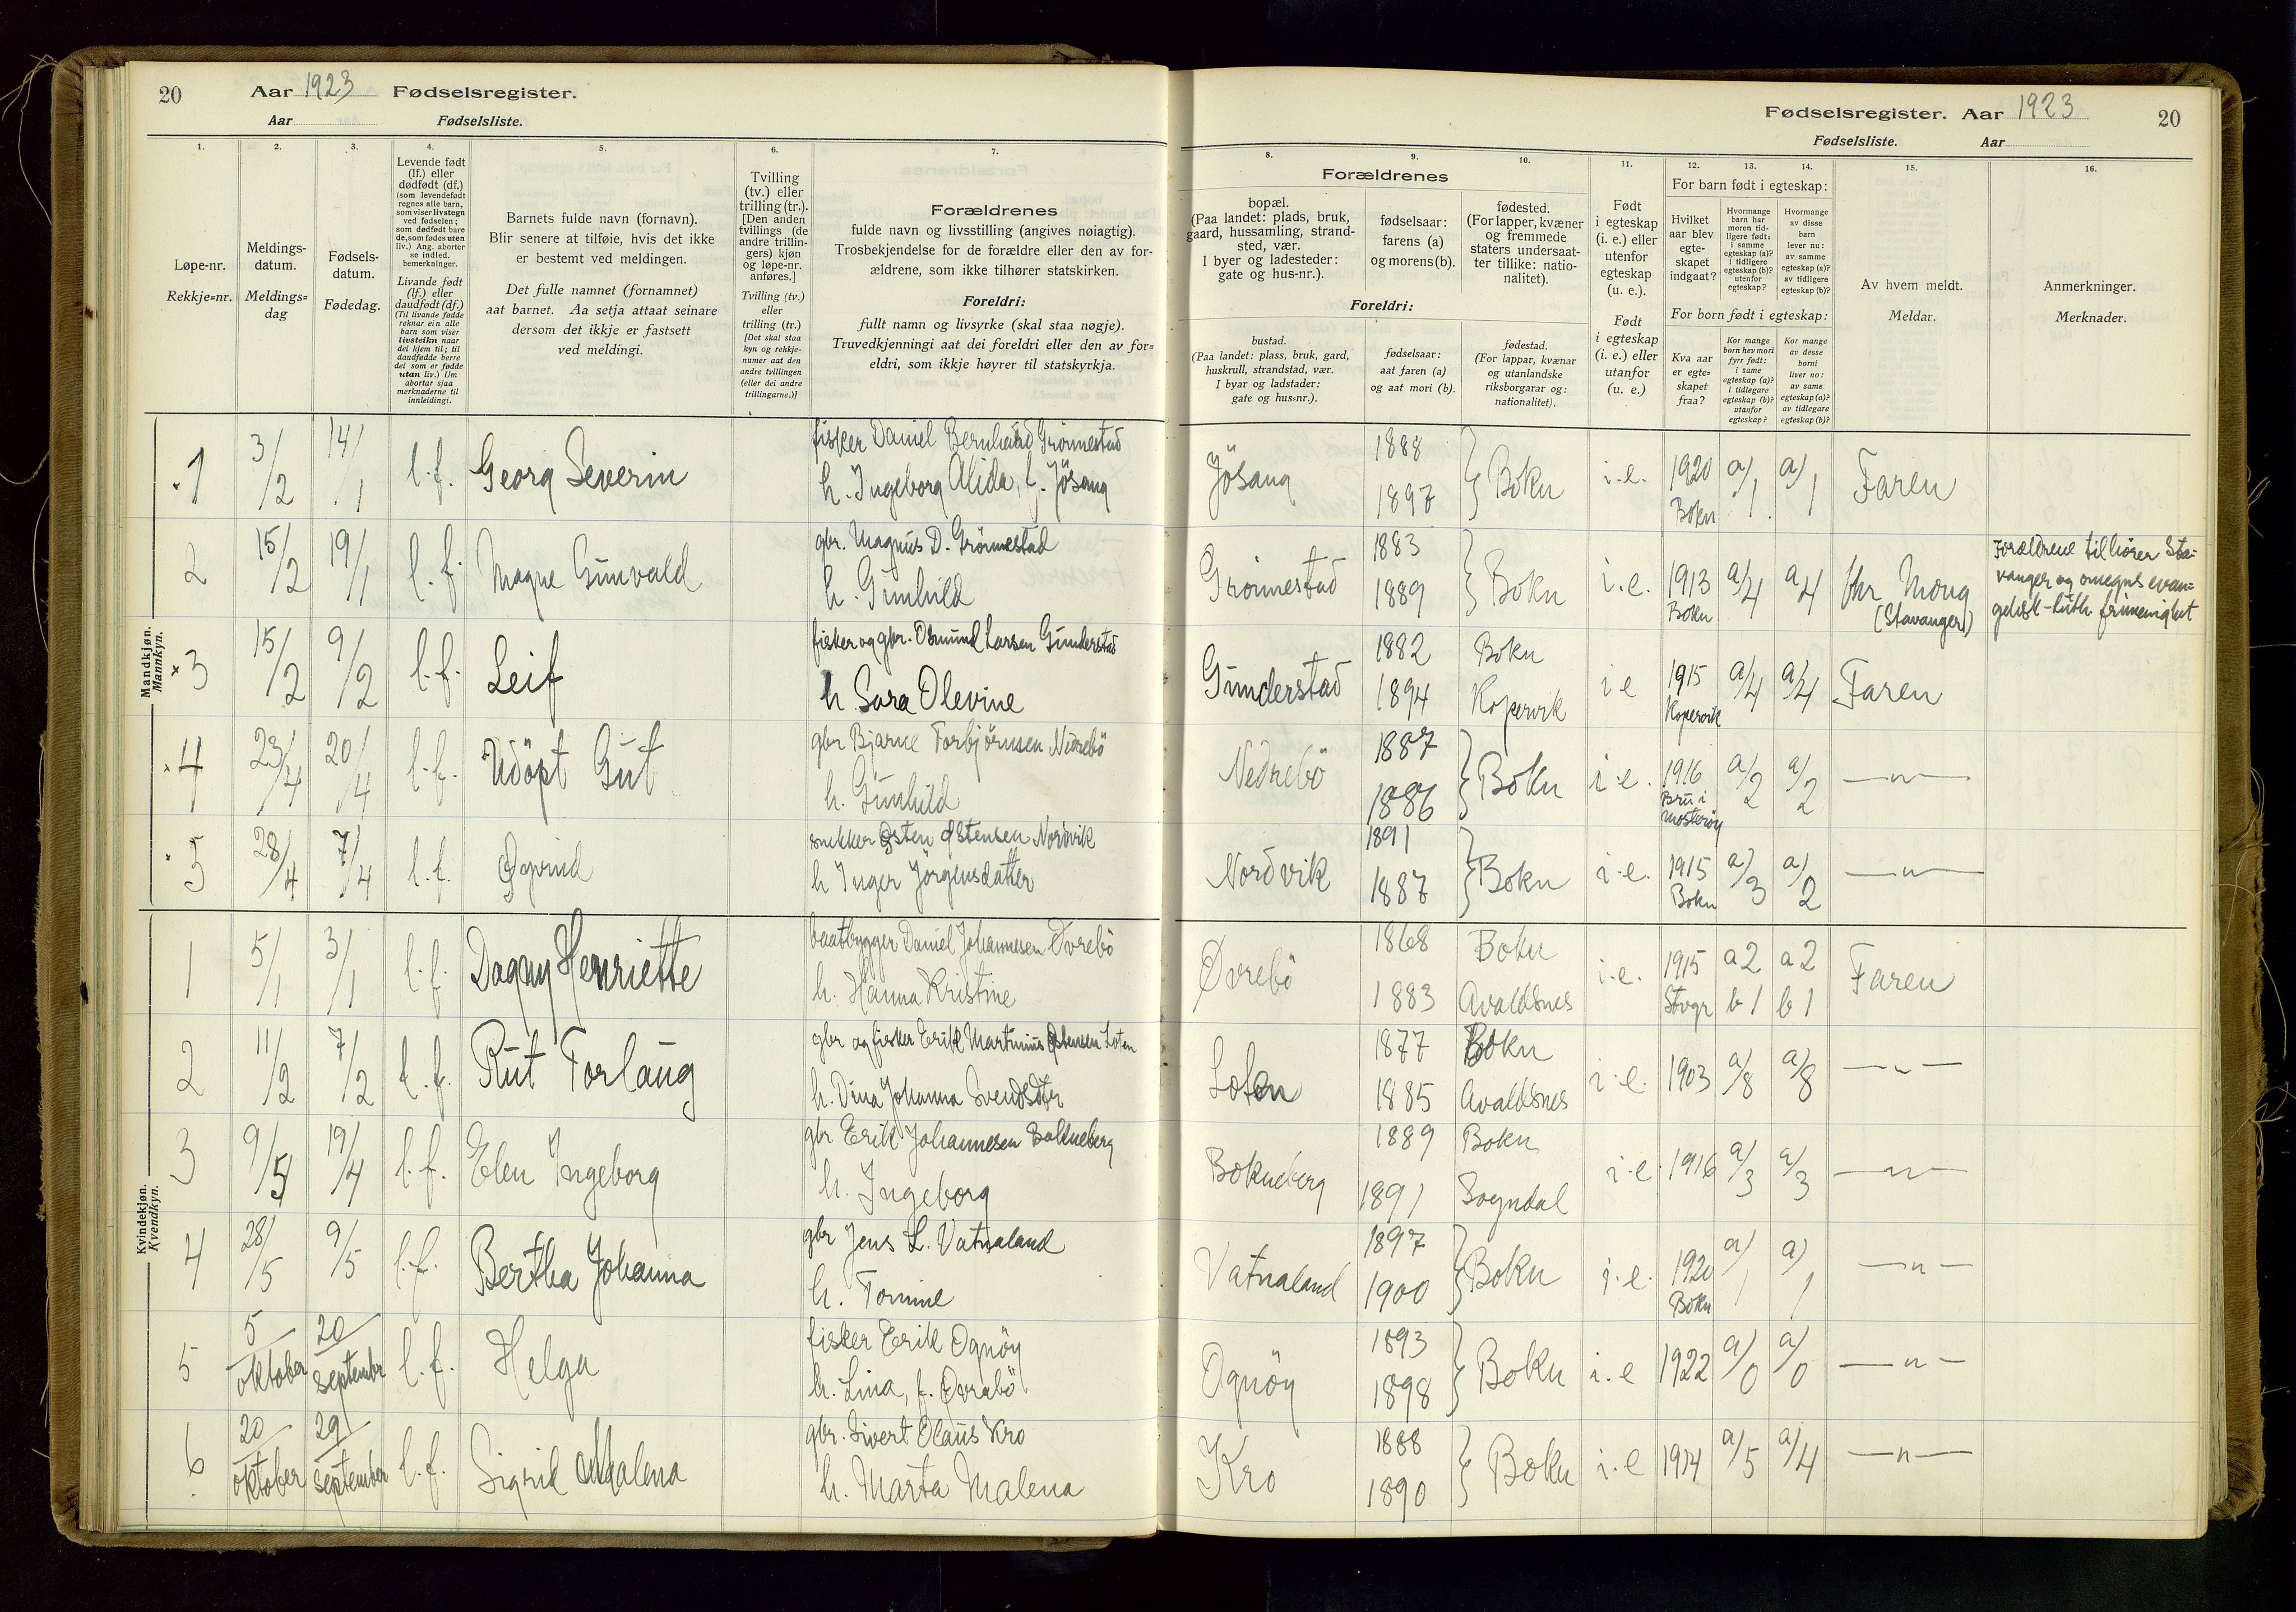 20 Aar 1923 Fødselsregister.
Aar Fødselsliste.
1. 2. 3. 4. 5. 6. 7.
Løpe-nr.
Rekkje=nr.
Meldings-
datum.
Meldings=
dag
Fødsels-
datum.
Fødedag.
Levende født
(lf.) eller
dødfødt (df.)
(som levendefødt
regnes alle barn,
som viser livstegn
ved fødselen;
som dødfødt bare
de, som fødes uten
liv.) Ang. aborter
se indled.
bemerkninger.
Livande født
(lf.) eller
daudfødt (df.)
(Til livande fødde
reknar ein alle
born som viser
livsteikn naar
dei kjem til; til
daudfødde berre
dei som er fødde
utan liv.) Um
abortar sjaa
merknaderne til
innleidingi.
Barnets fulde navn (fornavn).
Blir senere at tilføie, hvis det ikke
er bestemt ved meldingen.
Det fulle namnet (fornamnet)
aat barnet. Aa setja attaat seinare
dersom det ikkje er fastsett
ved meldingi.
Tvilling
(tv.) eller
trilling (tr.).
[Den anden
tvillings (de
andre trillin-
gers) kjøn
og løpe-nr.
anføres.]
Tvilling (tv.)
eller
trilling (tr.)
[Det skal staa
kyn og rekkje-
numer aat den
andre tvillingen
(eller dei andre
trillingarne.)]
Forældrenes
fulde navn og livsstilling (angives nøiagtig).
Trosbekjendelse for de forældre eller den av for-
ældrene, som ikke tilhører statskirken.
Foreldri:
fullt namn og livsyrke (skal staa nøgje).
Truvedkjenningi aat dei foreldri eller den av for=
eldri, som ikkje høyrer til statskyrkja.
Mandkjøn.
Mannkyn.
1 3/2 14/1 l.f. Georg Severin
fisker Daniel Bernhard Grönnestad
h. Ingeborg Alida, f. Jösang
2 15/2 19/1 l.f. Magne Gunvald
gbr. Magnus D. Grönnestad
h. Gunhild
3 15/2 9/2 l.f. Leif
fisker og gbr. Osmund Larsen Gunderstad
h. Sara Olevine
4 23/4 20/4 l.f. Udöpt Gut
gbr Bjarne Torbjörnsen Nedrebö
h. Gunhild
5 28/4 7/4 l.f. Øyvind
snekker Østen Østensen Nordvik
h Inger Jörgensdatter
Kvindekjøn.
Kvendkyn.
1 5/1 3/1 l.f. Dagny Henriette
baatbygger Daniel Johannesen Øvrebö
h. Hanna Kristine
2 11/2 7/2 l.f. Rut Torlaug
gbr og fisker Erik Martinius Østensen Loten
h. Dina Johanna Svendsdtr
3 9/5 19/4 l.f. Elen Ingeborg
gbr Erik Johannesen Bokneberg
h. Ingeborg
4 28/5 9/5 l.f. Bertha Johanna
gbr Jens L. Vatnaland
h. Tomine
5 5/oktober 20/september l.f. Helga
fisker Erik Ognöy
h. Lina, f. Øvrabö
6 20/oktober 29/september l.f. Sigrid Malena
gbr. Sivert Olaus Kro
h. Marta Malena
Fødselsregister. Aar 1923 20
Fødselsliste. Aar
8. 9. 10. 11. 12. 13. 14. 15. 16.
Forældrenes
bopæl.
(Paa landet: plads, bruk,
gaard, hussamling, strand-
sted, vær.
I byer og ladesteder:
gate og hus-nr.).
fødselsaar:
farens (a)
og morens (b).
fødested.
(For lapper, kvæner
og fremmede
staters undersaat-
ter tillike: natio-
nalitet).
Foreldri:
bustad.
(Paa landet: plass, bruk, gard,
huskrull, strandstad, vær.
I byar og ladstader:
gate og hus=nr.).
fødselsaar:
aat faren (a)
og aat mori (b).
fødestad.
(For lappar, kvænar
og utanlandske
riksborgarar og:
nationalitet).
Født
i egteskap
(i. e.) eller
utenfor
egteskap
(u. e.).
Født
i egteskap
(i. e.) eller
utanfor
(u. e.)
For barn født i egteskap:
Hvilket
aar blev
egte-
skapet
indgaat?
Hvormange
barn har
moren tid-
ligere født:
i samme
egteskap (a)?
i tidligere
egteskap (b)?
utenfor
egteskap?
Hvormange
av disse
barn
lever nu:
av samme
egteskap (a)?
av tidligere
egteskap (b)?
For born født i egteskap:
Kva aar
er egte-
skapet
fraa?
Kor mange
born hev mori
fyrr født:
i same
egteskap (a)?
i tidlegare
egteskap (b)?
utanfor
egteskap?
Kor mange
av desse
borni
liver no:
av same
egteskap (a)?
av tidlegare
egteskap (b)?
Av hvem meldt.
Meldar.
Anmerkninger.
Merknader.
Jösang 1888 1897 } Bokn i.e. 1920 Bokn a/1 a/1 Faren
Grönnestad 1883 1889 } Bokn i.e. 1913 Bokn a/4 a/4 (Stavanger)
Forældrene tilhörer Sta-
vanger og omegns evan-
gelisk-luth. frimenighet
Gunderstad 1882 Bokn 1894 Kopervik i e 1915 Kopervik a/4 a/4 Faren
Nedrebö 1887 1886 } Bokn i.e. 1916 Bru i Mosteröy a/2 a/2 —"—
Nordvik 1891 1887 } Bokn i.e. 1915 Bokn a/3 a/2 —"—
Øvrebö 1868 Bokn 1883 Avaldsnes i.e. 1915 Stvgr a 2 b 1 a 2 b 1 Faren
Loten 1877 Bokn 1885 Avaldsnes i.e. 1903 a/8 a/8 —"—
Bokneberg 1889 Bokn 1891 Sogndal i.e. 1916 a/3 a/3 —"—
Vatnaland 1897 1900 } Bokn i.e. 1920 Bokn a/1 a/1 —"—
Ognöy 1893 1898 } Bokn i.e 1922 a/0 a/0 —"—
Kro 1888 1890 } Bokn i.e 1914 a/5 a/4 —"—